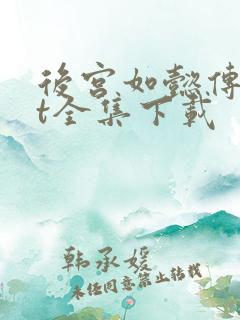 後宮如懿傳
t全集下載
韩承媛
未经同意禁止转载